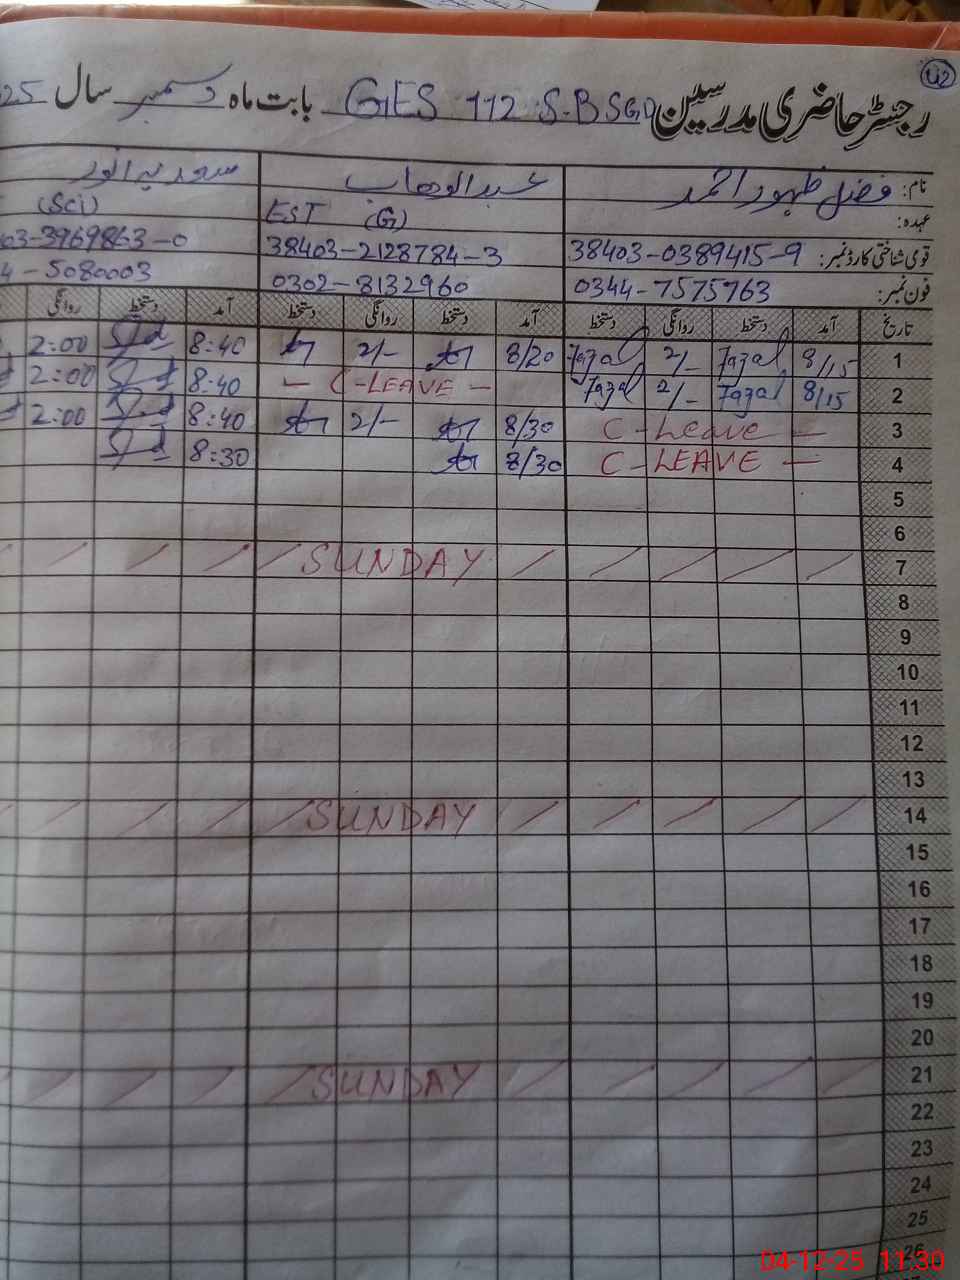 U2
رجسٹر حاضری مدرسین GES 112 S.B SGD بابت ماہ دسمبر سال 25
نام: فضل ظہور احمد عبدالوھاب سعدیہ انور
عہدہ: EST (G) (Sci)
قومی شناختی کارڈ نمبر: 38403-0389415-9 38403-2128784-3 03-3969863-0
فون نمبر: 0344-7575763 0302-8132960 4-5080003
تاریخ آمد دستخط روانگی دستخط آمد دستخط روانگی دستخط آمد دستخط روانگی
1 8/15 Fazal 2/- Fazal 8/20 2/- 8:40 2:00
2 8/15 Fazal 2/- Fazal - C-LEAVE - 8:40 2:00
3 C-Leave - 8/30 2/- 8:40 2:00
4 C-LEAVE - 8/30 8:30
5
6
7 SUNDAY
8
9
10
11
12
13
14 SUNDAY
15
16
17
18
19
20
21 SUNDAY
22
23
24
25
26
04-12-25 11:30